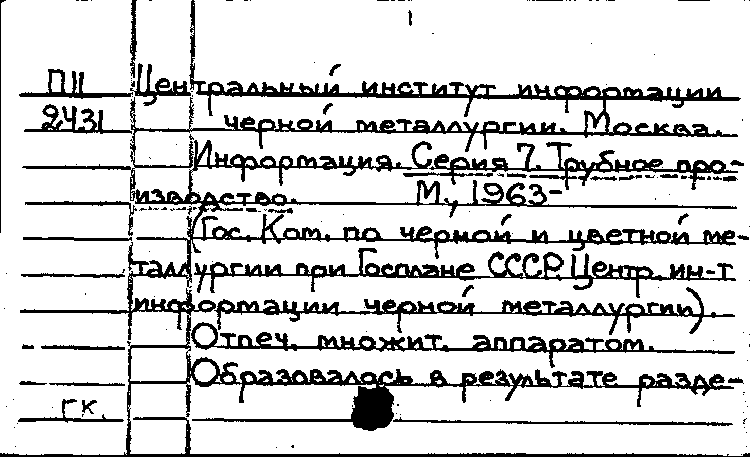 П11 Центральный институт информации
2431 черной металлургии. Москва.
Информация. Серия 7. Трубное про-
изводство. М., 1963-
(Гос. Ком. по черной и цветной ме-
таллургии при Госплане СССР. Центр. ин-т
информации черной металлургии).
Отпеч. множит. аппаратом.
Образовалось в результате разде-
гк.